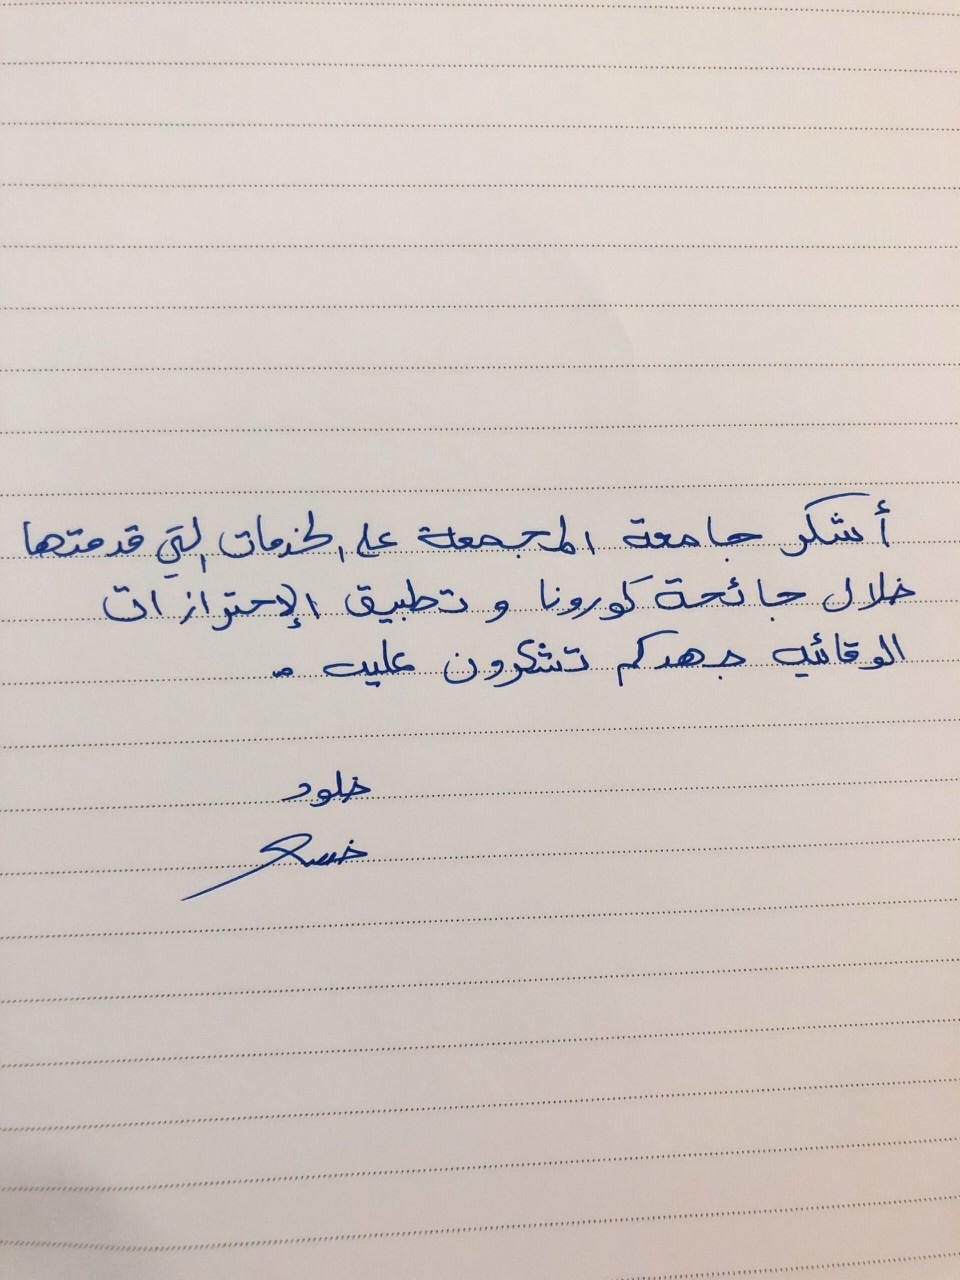 أشكر جامعة المجمعة على الخدمات التي قدمتها
خلال جائحة كورونا و تطبيق الإحترازات
الوقائيه جهدكم تشكرون عليه ..
خلود